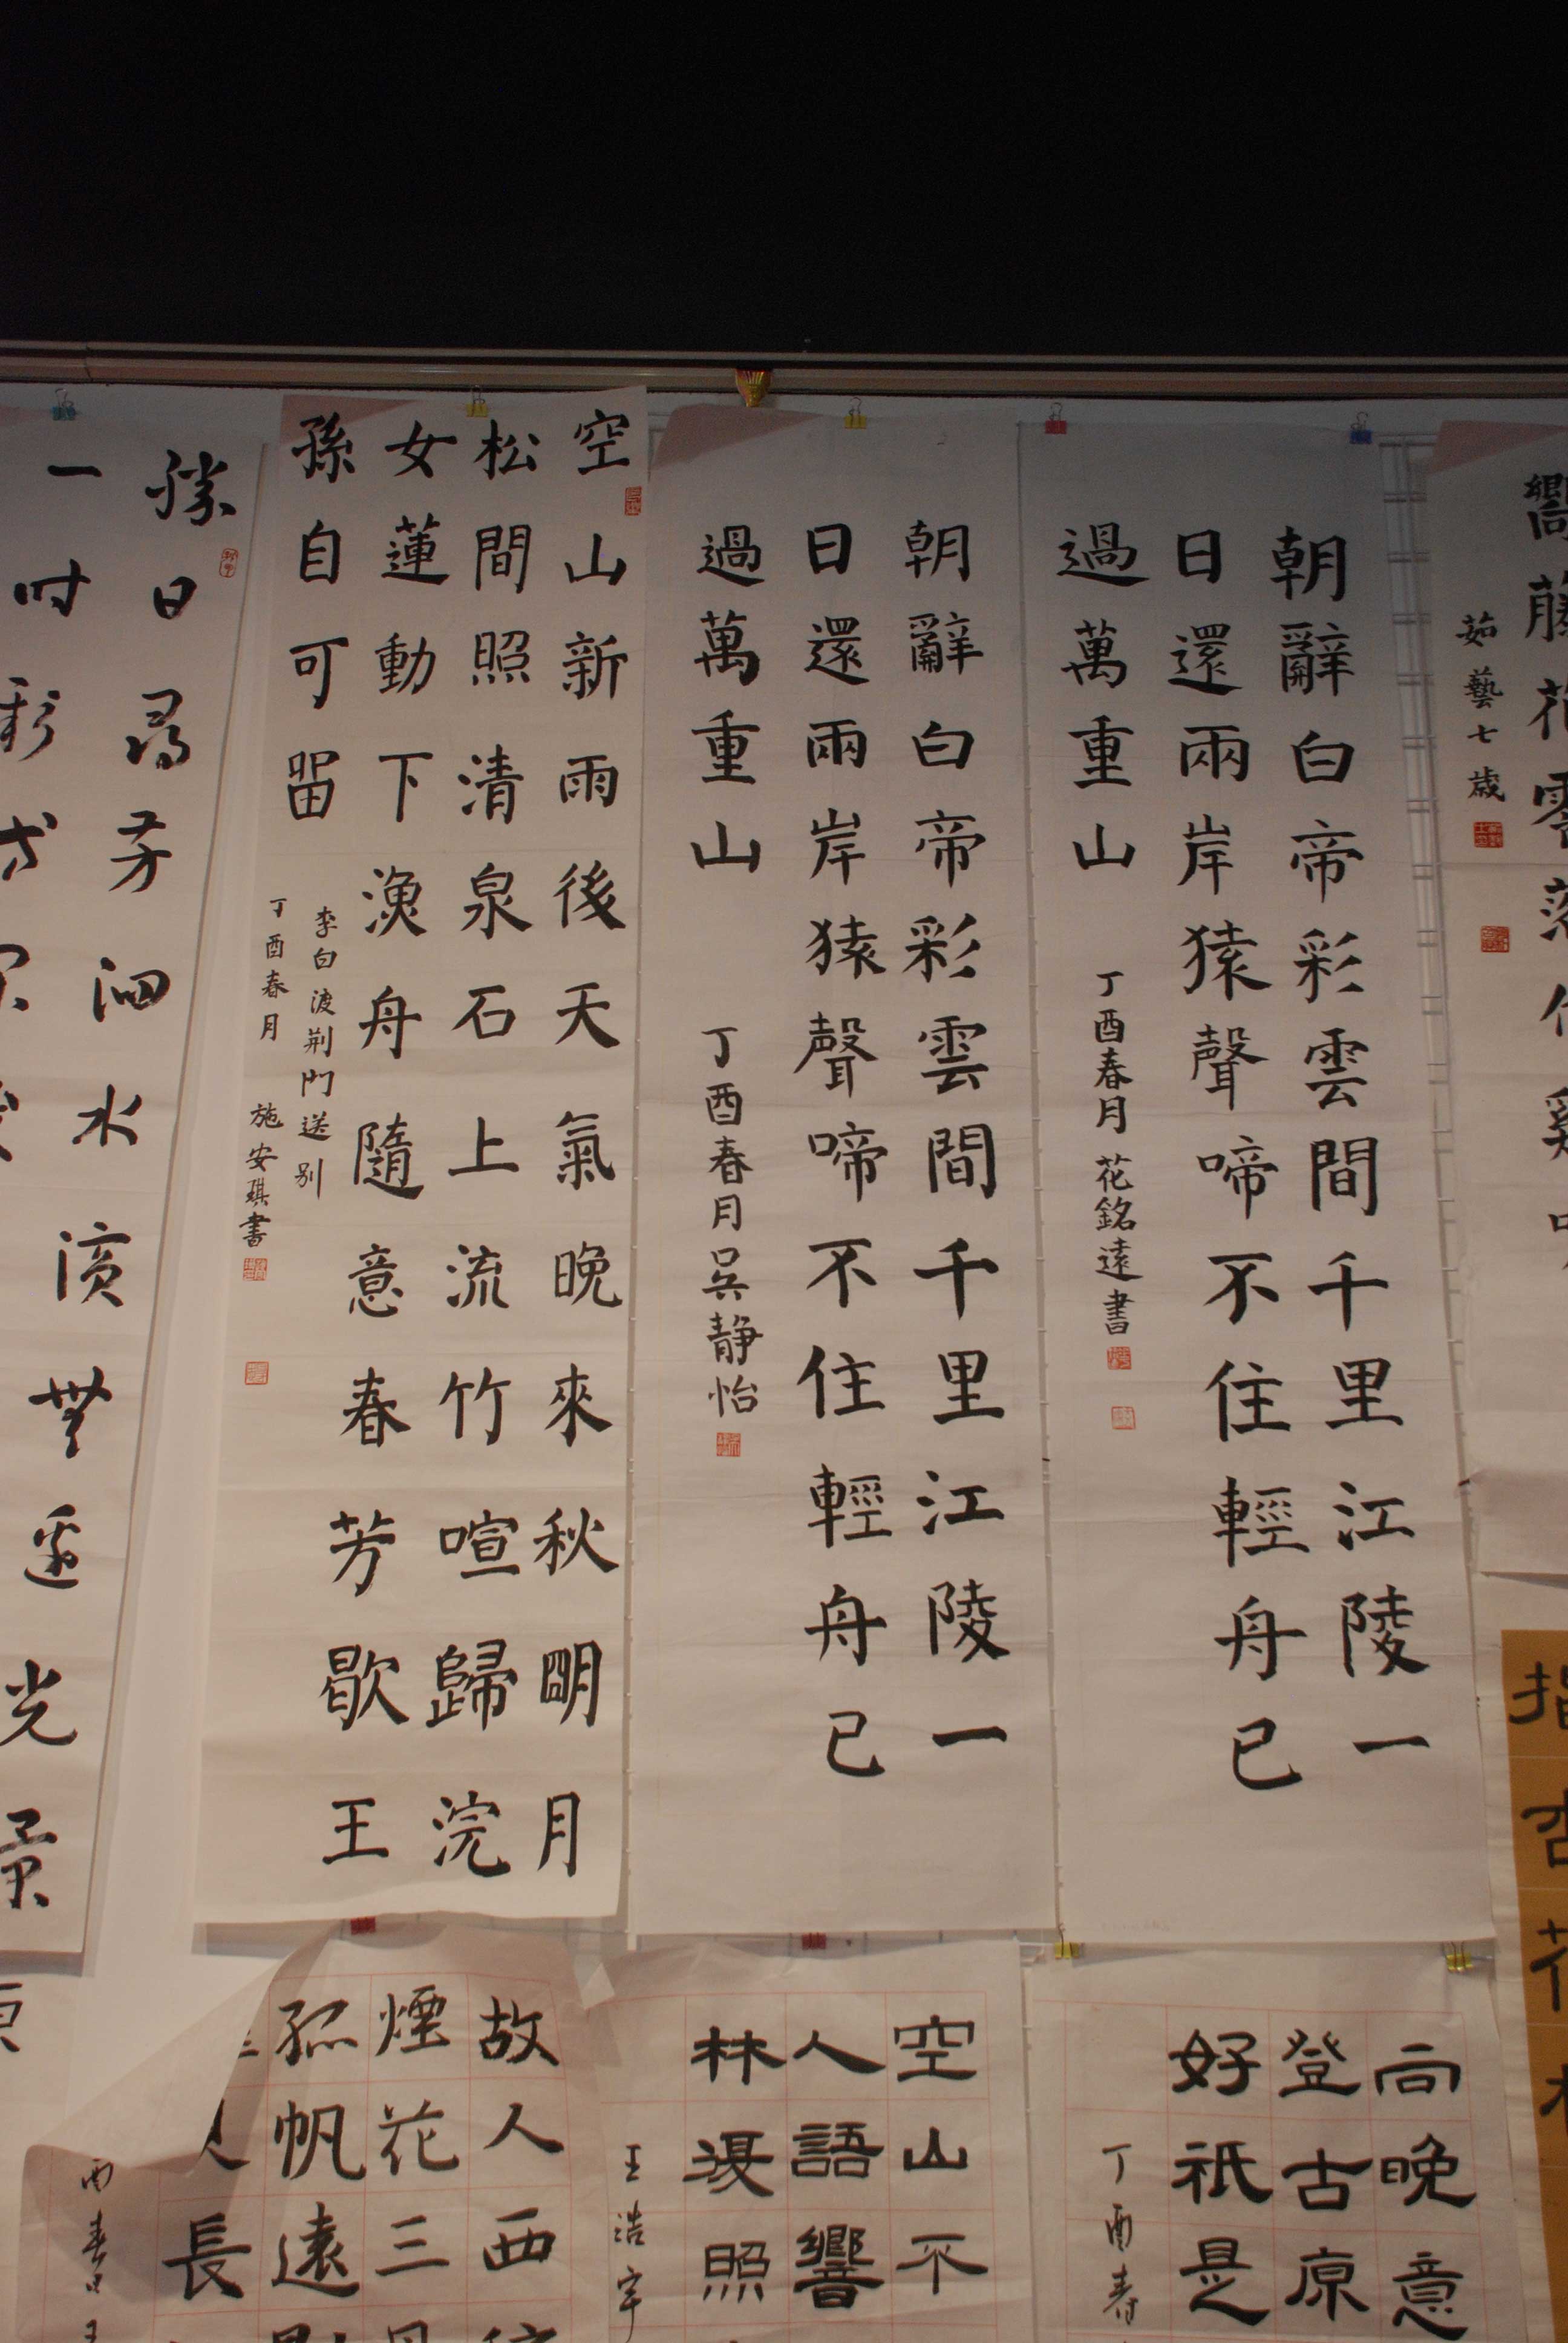 茹藝七歲
朝辭白帝彩雲間千里江陵一
日還兩岸猿聲啼不住輕舟已
過萬重山
丁酉春月 花銘遠書
朝辭白帝彩雲間千里江陵一
日還兩岸猿聲啼不住輕舟已
過萬重山
丁酉春月吳静怡
空山新雨後天氣晚來秋明月
松間照清泉石上流竹喧歸浣
女蓮動下漁舟隨意春芳歇王
孫自可留
李白渡荆門送别
丁酉春月 施安琪書
勝日尋芳泗水濱無邊光景
一时
向晚意
登古原
好衹是
丁酉春
空山不
人語響
林漫照
王浩宇
故人西
煙花三
孤帆遠
長